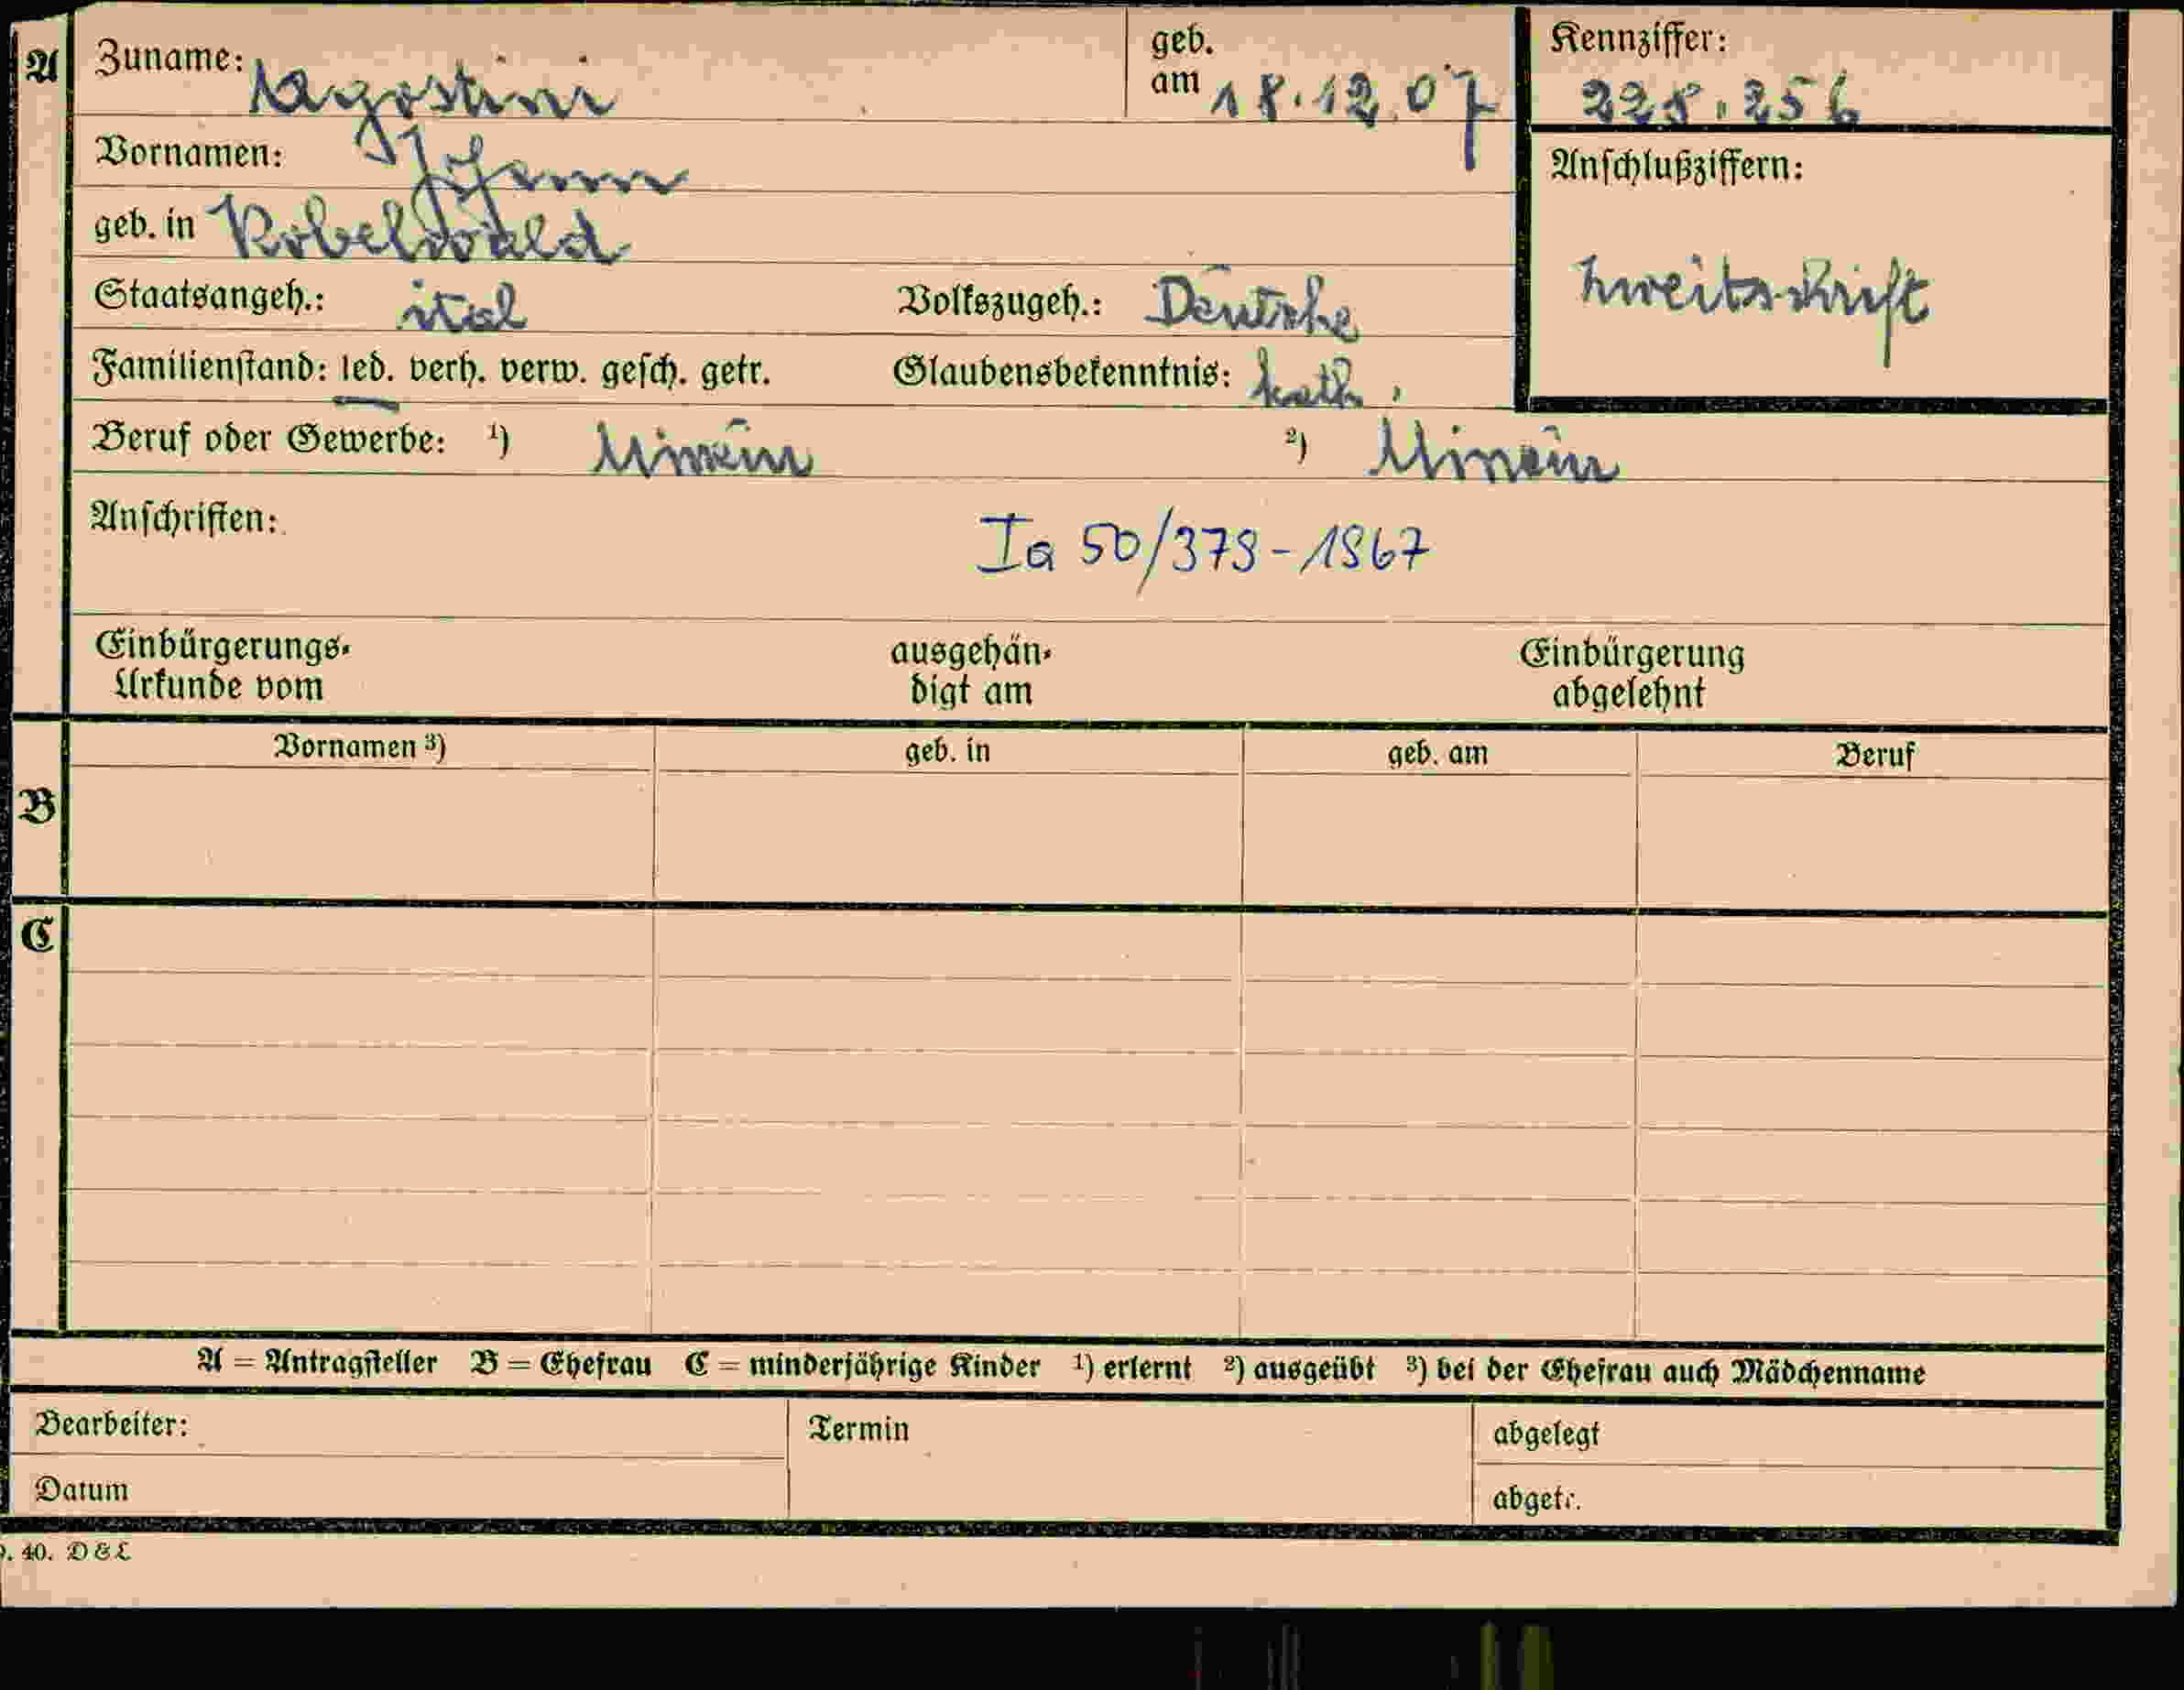 A Zuname: Agostini geb. am 18.12.07 Kennziffer: 228.256
Vornamen: Johann Anschlußziffern:
geb. in Kobelwald Zweitschrift
Staatsangeh.: ital Volkszugeh.: Deutsche
Familienstand: led. verh. verw. gesch. getr. Glaubensbekenntnis: kath.
Beruf oder Gewerbe: 1) Mineur 2) Mineur
Anschriften: Ia 50/379-1967
Einbürgerungs- ausgehän- Einbürgerung
Urkunde vom digt am abgelehnt
Vornamen 3) geb. in geb. am Beruf
B
C
A = Antragsteller B = Ehefrau C = minderjährige Kinder 1) erlernt 2) ausgeübt 3) bei der Ehefrau auch Mädchenname
Bearbeiter: Termin abgelegt
Datum abgetr.
40. D & L